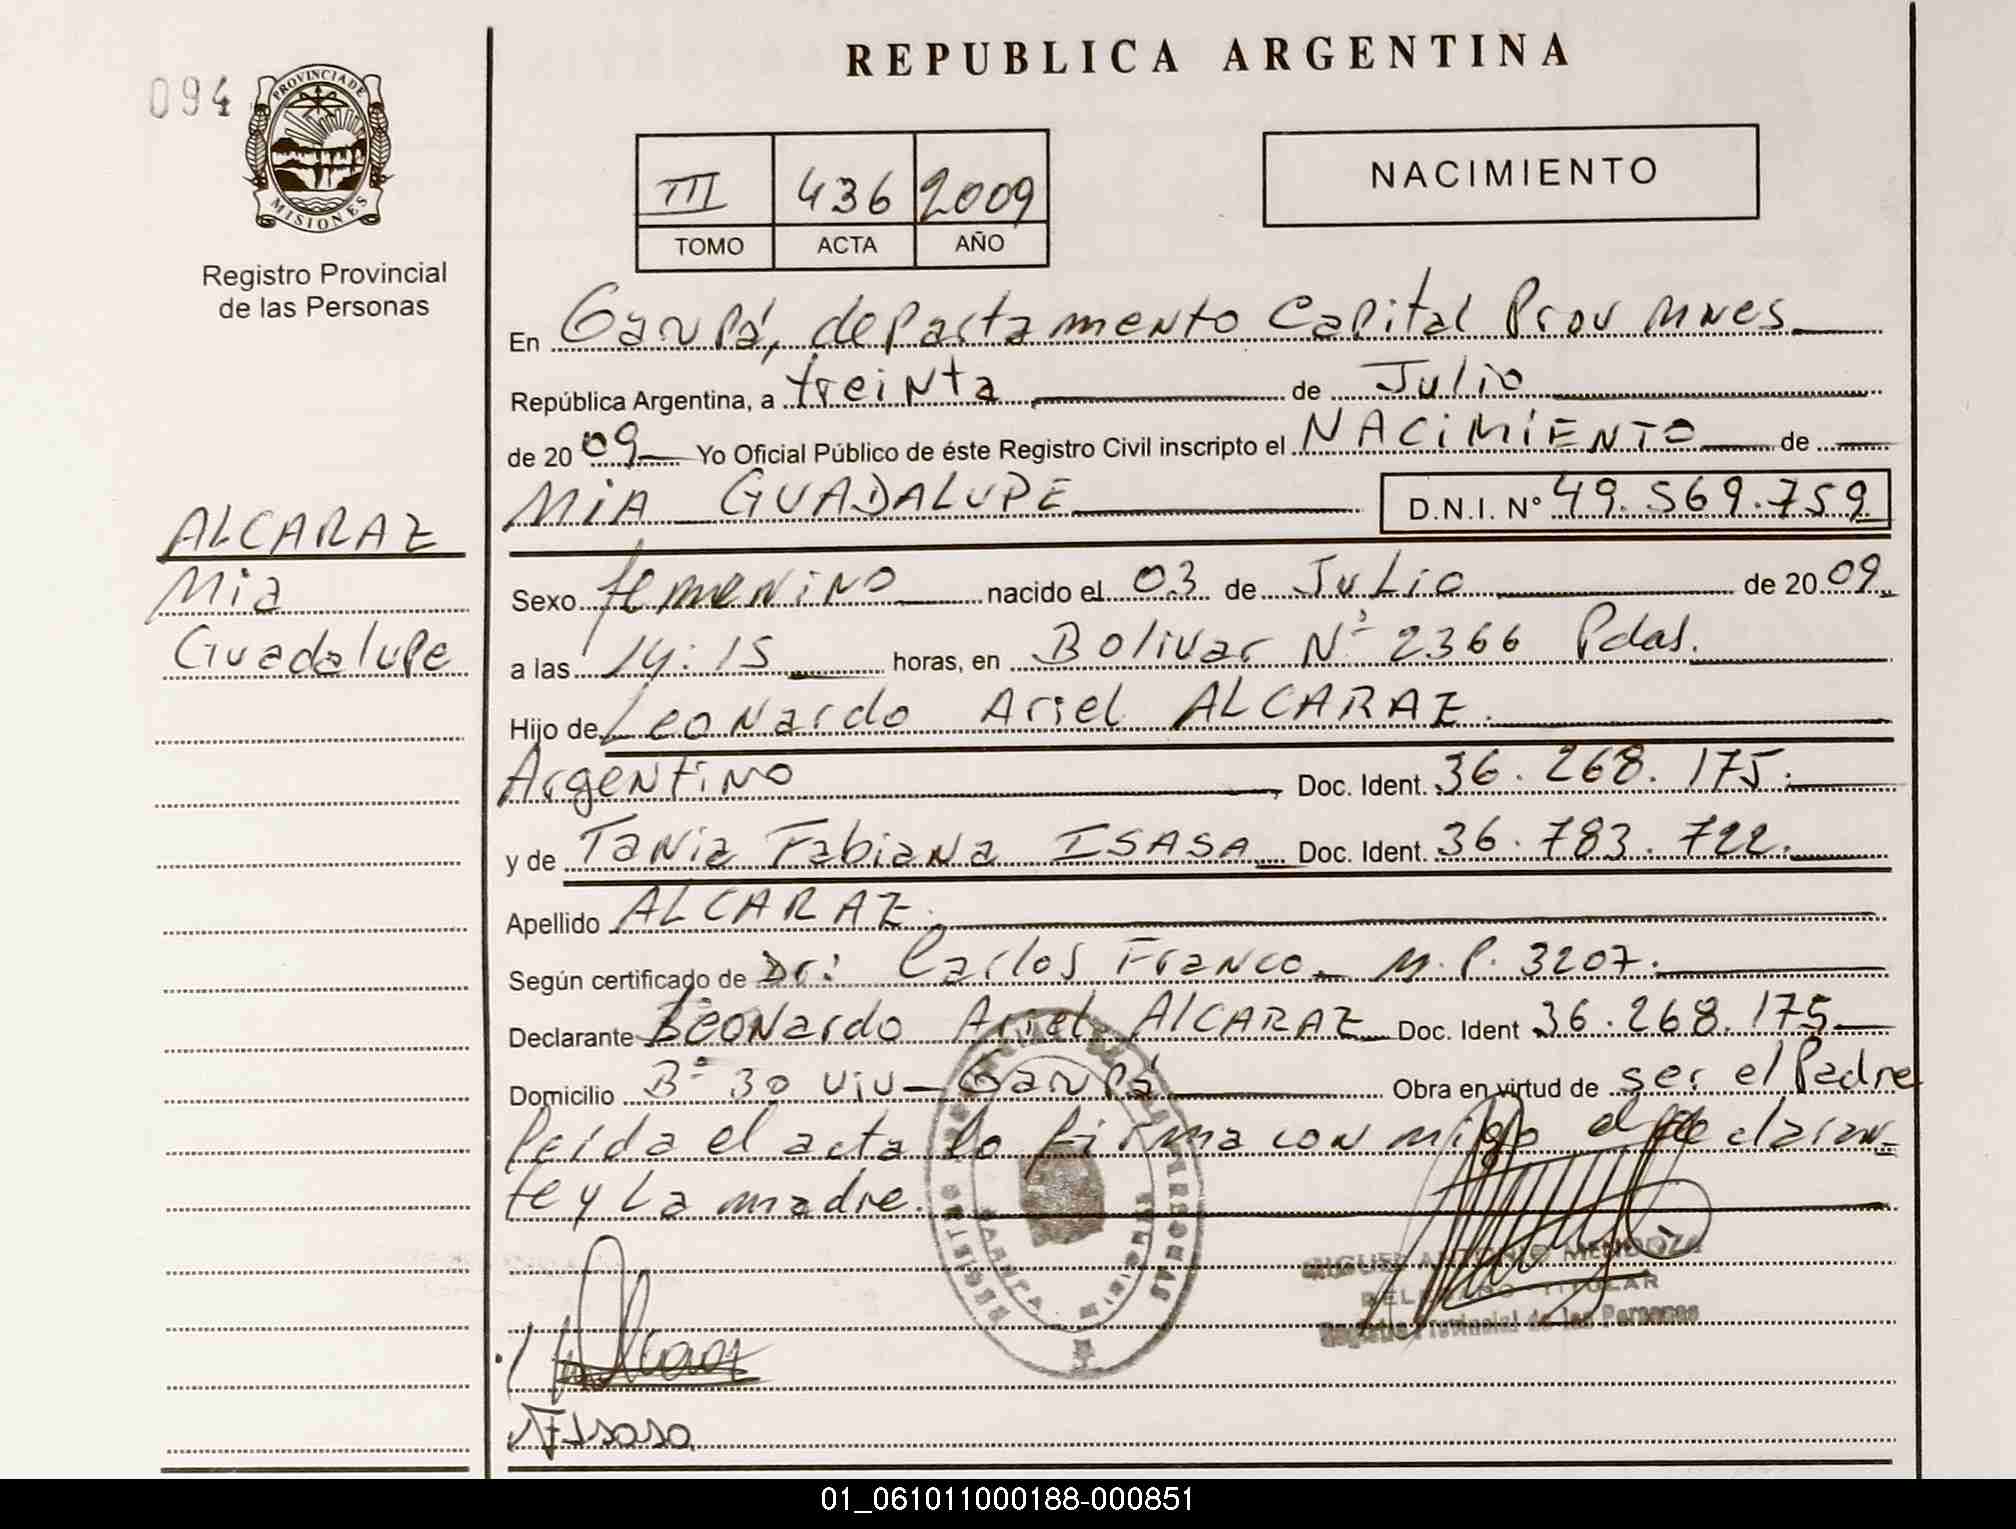 REPUBLICA ARGENTINA
094
PROVINCIA DE
MISIONES
Registro Provincial
de las Personas
III 436 2009
TOMO ACTA AÑO
NACIMIENTO
En Garupá, departamento Capital Prov Mnes
República Argentina, a treinta de Julio
de 2009 Yo Oficial Público de éste Registro Civil inscripto el NACIMIENTO de
MIA GUADALUPE D.N.I. Nº 49.569.759
ALCARAZ
Mia
Guadalupe
Sexo femenino nacido el 03 de Julio de 2009
a las 14:15 horas, en Bolivar Nº 2366 Pdas.
Hijo de Leonardo Ariel ALCARAZ.
Argentino Doc. Ident. 36.268.175.
y de Tania Fabiana ISASA Doc. Ident. 36.783.722.
Apellido ALCARAZ.
Según certificado de Dr: Carlos Franco M.P. 3207.
Declarante Leonardo Ariel ALCARAZ Doc. Ident 36.268.175
Domicilio Bº 30 viv - Garupá Obra en virtud de ser el Padre
leida el acta lo firma con migo el declaran-
te y la madre.
MIGUEL ANTONIO MENDOZA
DELEGADO TITULAR
Registro Provincial de las Personas
Alcaraz
Isasa
01_061011000188-000851